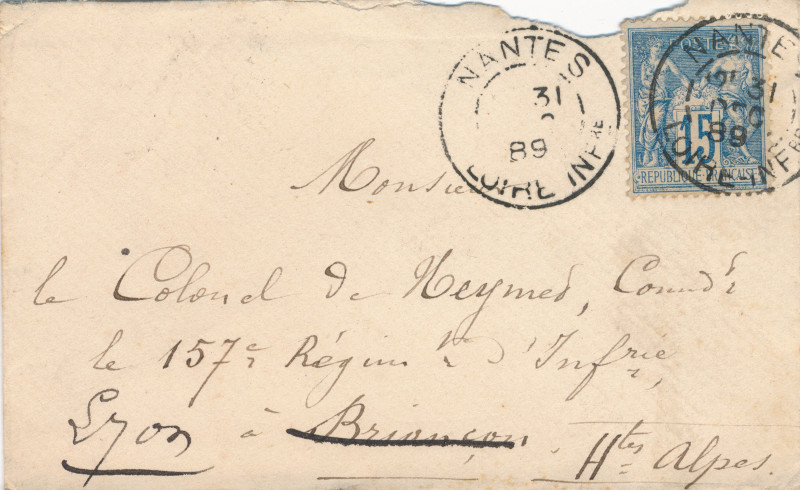 NANTES
31
89
LOIRE INFRE
NANTES
31
89
LOIRE INFRE
15
REPUBLIQUE FRANÇAISE
Monsieur
le Colonel de Heymès, Commdt
le 157e Régimt d'Infrie,
Lyon à Briançon. Htes Alpes.